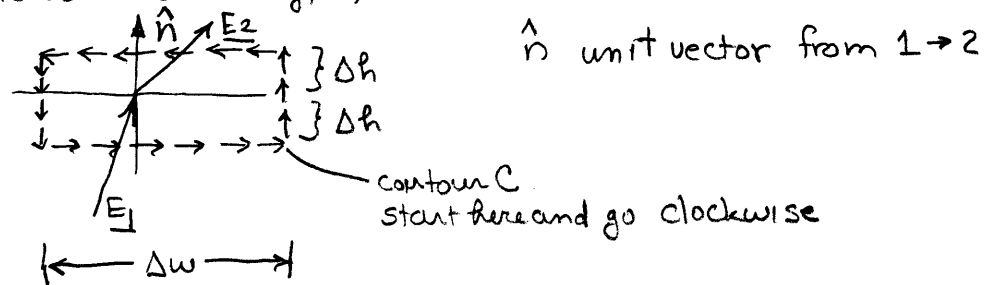 n̂ E2
n̂ unit vector from 1→2
} Δh
} Δh
contour C
start here and go clockwise
E1
Δw